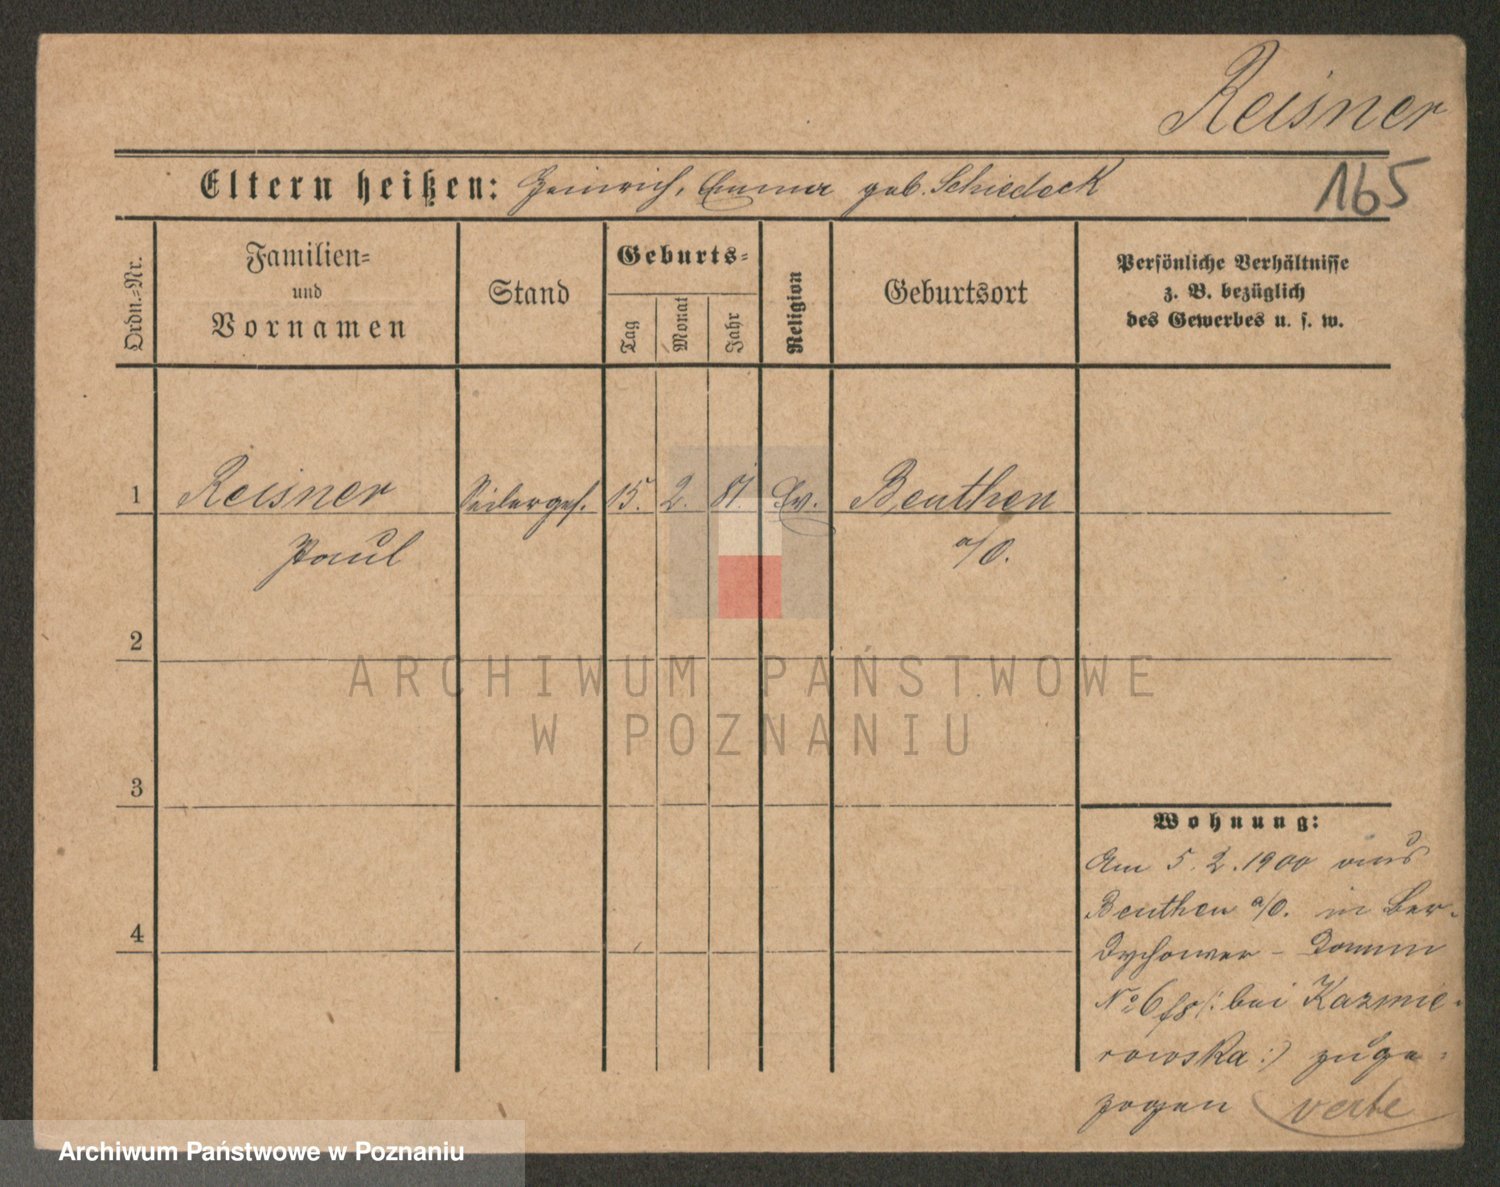 Reisner
165
Eltern heißen: Heinrich, Emma geb. Schiedeck
Ordn.-Nr.
Familien-
und
Vornamen
Stand
Geburts-
Tag
Monat
Jahr
Religion
Geburtsort
Persönliche Verhältnisse
z. B. bezüglich
des Gewerbes u. s. w.
1
Reisner
Seilerges.
15.
2.
81.
Ev.
Beuthen
Paul
a/O.
2
ARCHIWUM PAŃSTWOWE
W POZNANIU
3
4
Wohnung:
Am 5. 2. 1900 aus
Beuthen a/O. in Ber-
dychower-Damm
No 6 /: bei Kazmie-
rowska :/ zuge-
zogen verte
Archiwum Państwowe w Poznaniu